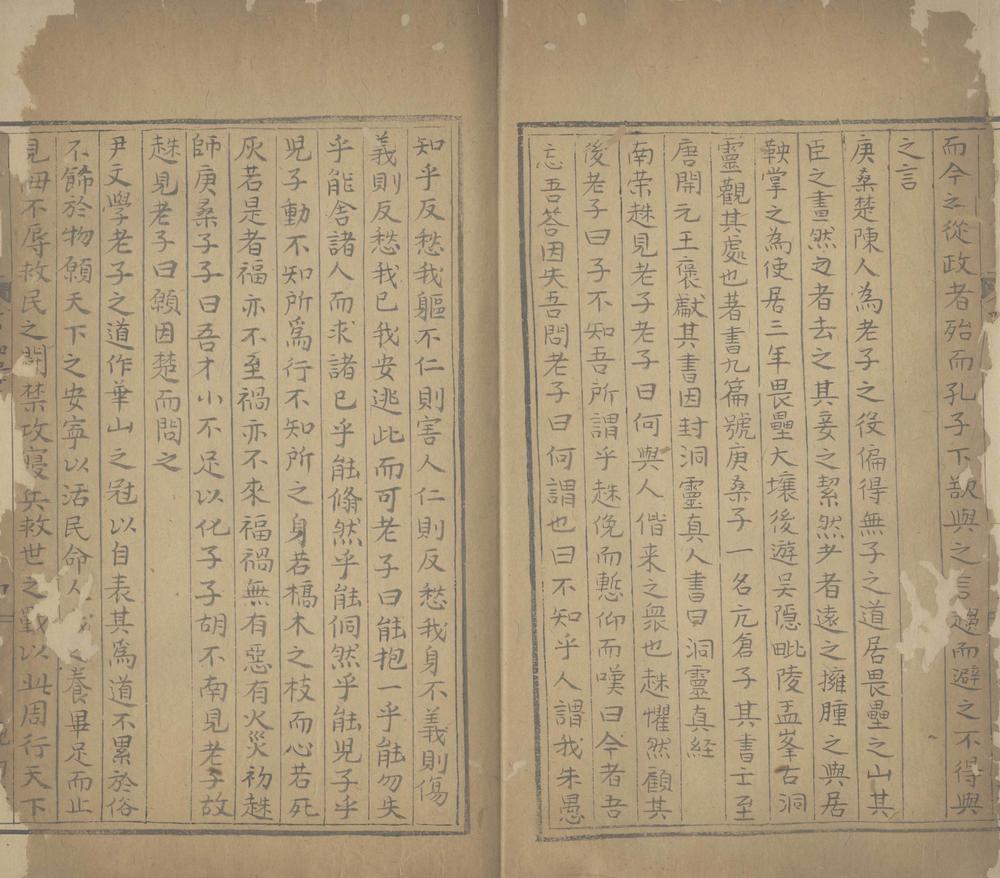 而今之從政者殆而孔子下欲與之言趨而避之不得與
之言
庚桑楚陳人為老子之役偏得無子之道居畏壘之山其
臣之畫然知者去之其妾之絜然者遠之擁腫之與居
鞅掌之為使居三年畏壘大壤後遊吳隱毗陵盂峯古洞
靈觀其處也著書九篇號庚桑子一名亢倉子其書士至
唐開元王褒獻其書因封洞靈真人書曰洞靈真經
南荣趎見老子老子曰何與人偕来之衆也趎懼然顧其
後老子曰子不知吾所謂乎趎俛而慙仰而嘆曰今者吾
忘吾荅因失吾問老子曰何謂也曰不知乎人謂我朱愚
知乎反愁我軀不仁則害人仁則反愁我身不義則傷
義則反愁我已我安逃此而可老子曰能抱一乎能勿失
乎能舍諸人而求諸已乎能翛然乎能侗然乎能児子乎
児子動不知所為行不知所之身若槁木之枝而心若死
灰若是者福亦不至禍亦不來福禍無有惡有火災初趎
師庚桑子子曰吾才小不足以化子子胡不南見老子故
趎見老子曰願因楚而問之
尹文學老子之道作華山之冠以自表其為道不累於俗
不飾於物願天下之安寧以活民命人之養畢足而止
見侮不辱救民之鬬禁攻寢兵救世之戰以此周行天下